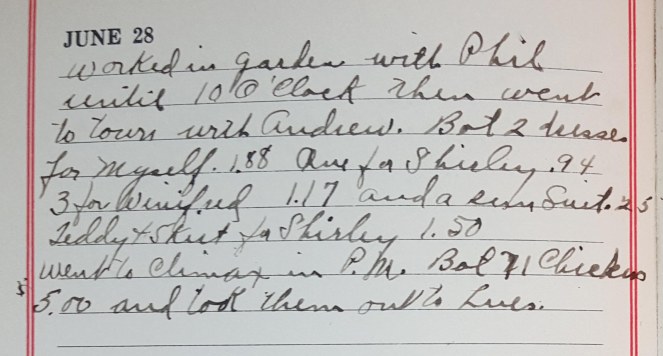 JUNE 28
worked in garden with Phil
until 10 O'Clock then went
to town with Andrew. Bot 2 dresses
for Myself. 1.88 One for Shirley .94
3 for Winifred 1.17 and a sun Suit. 25
Teddy + Skirt for Shirley 1.50
went to Climax in P.M. Bot 71 Chickens
5.00 and took them out to